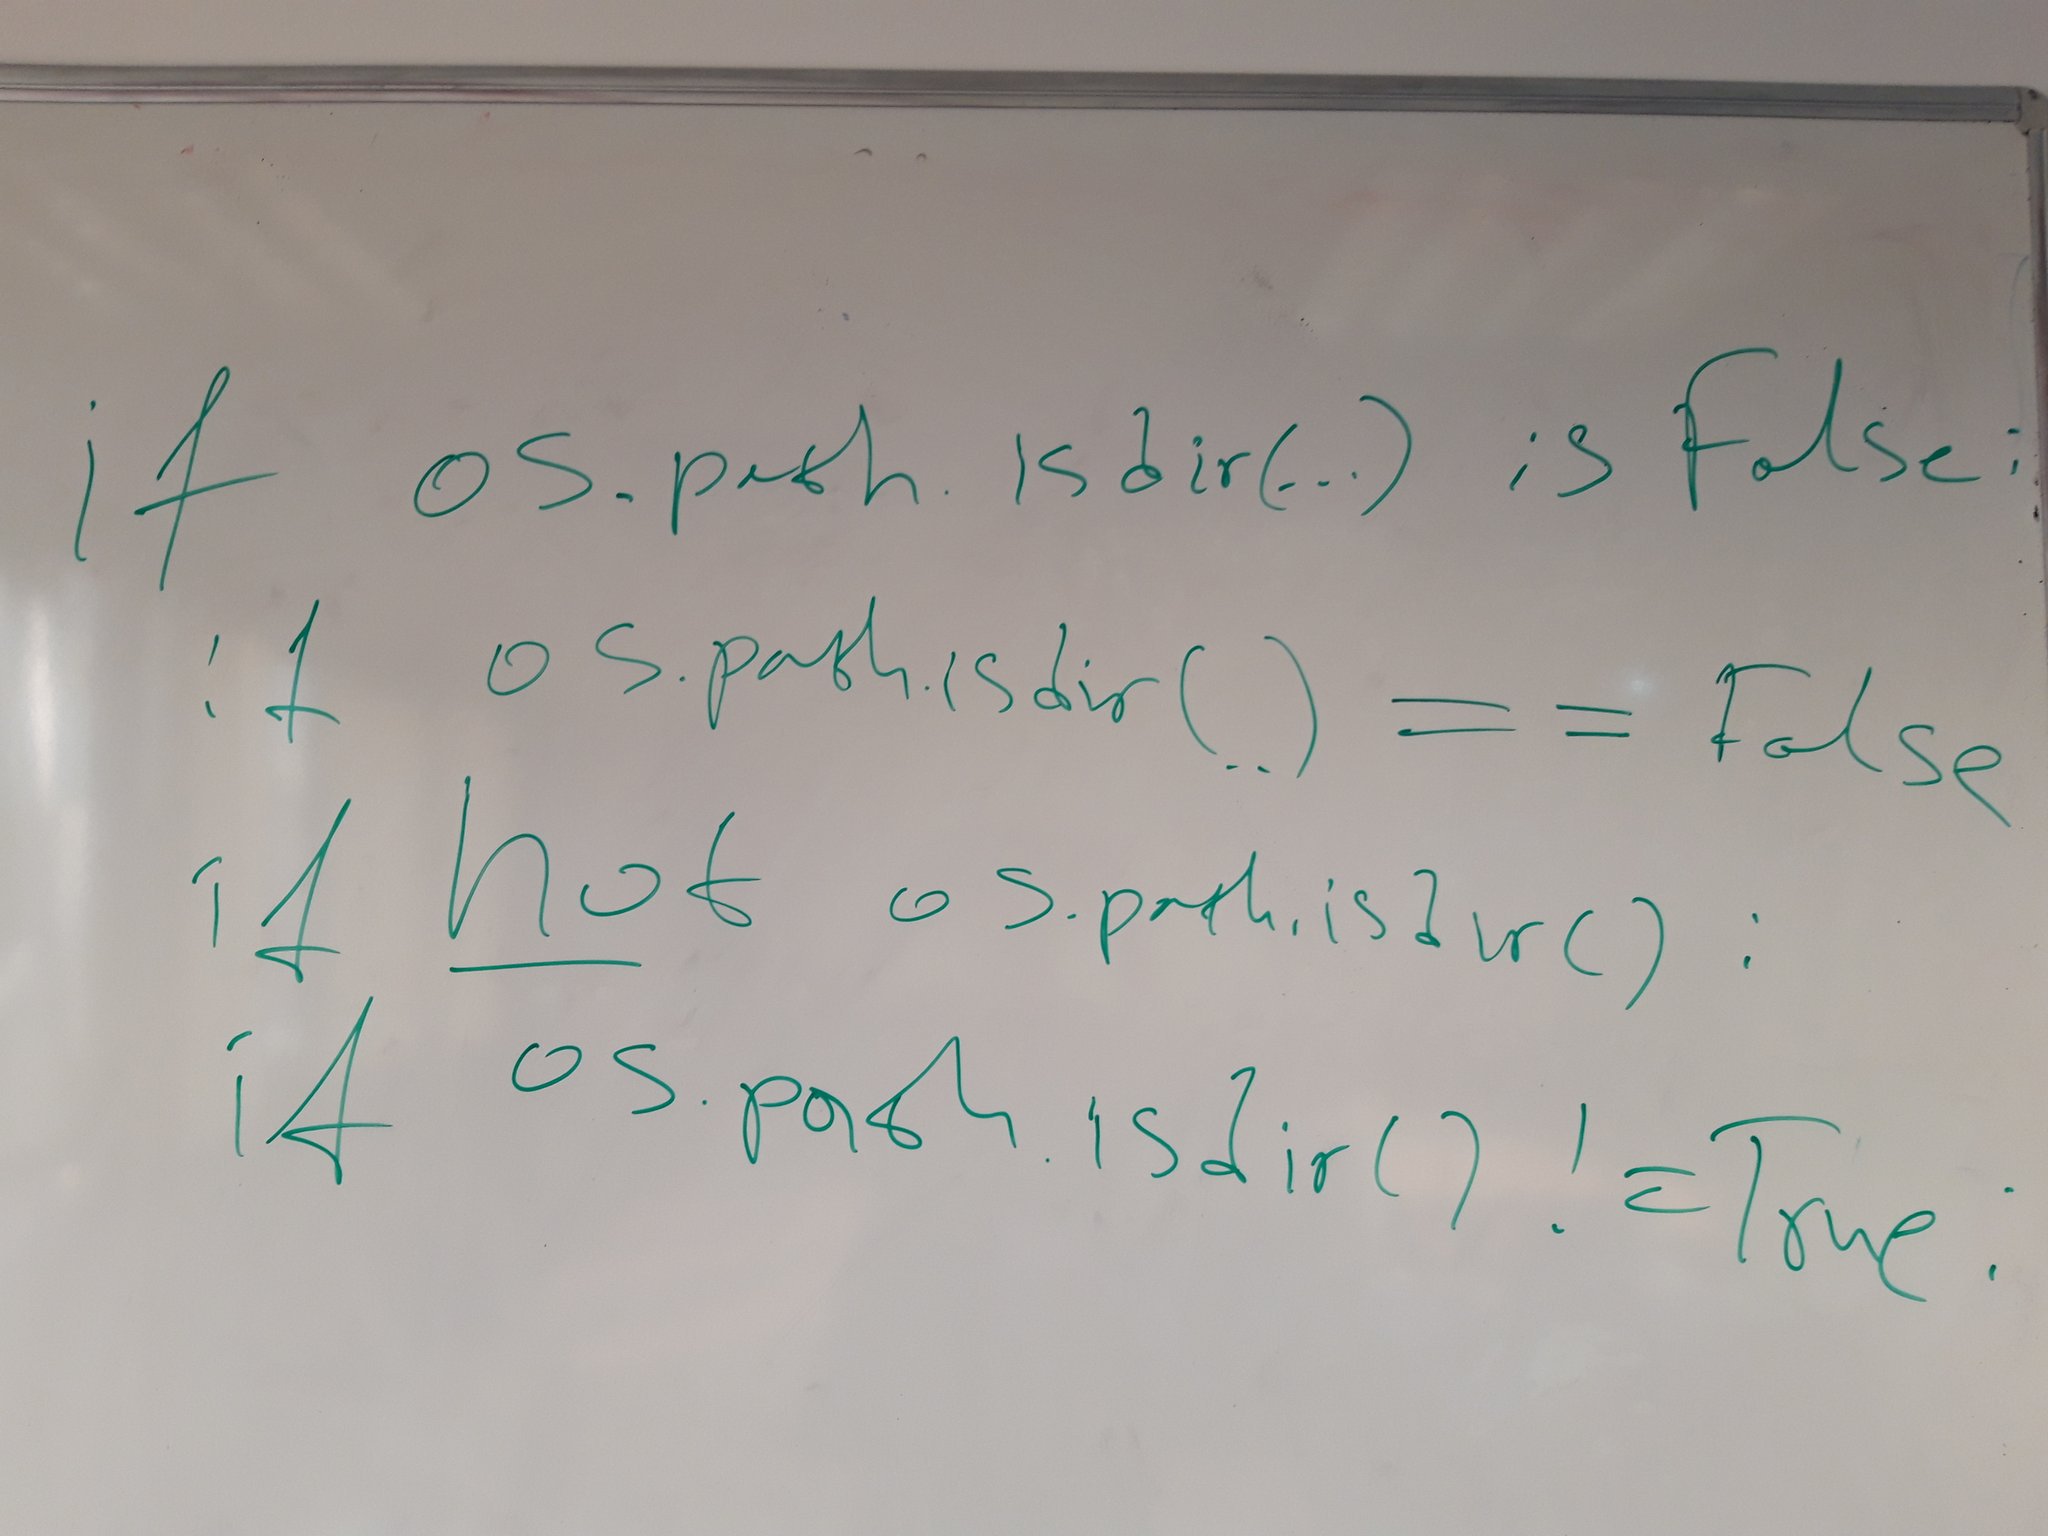 if os.path.isdir(...) is False:
if os.path.isdir(..) == False
if not os.path.isdir():
if os.path.isdir() != True: